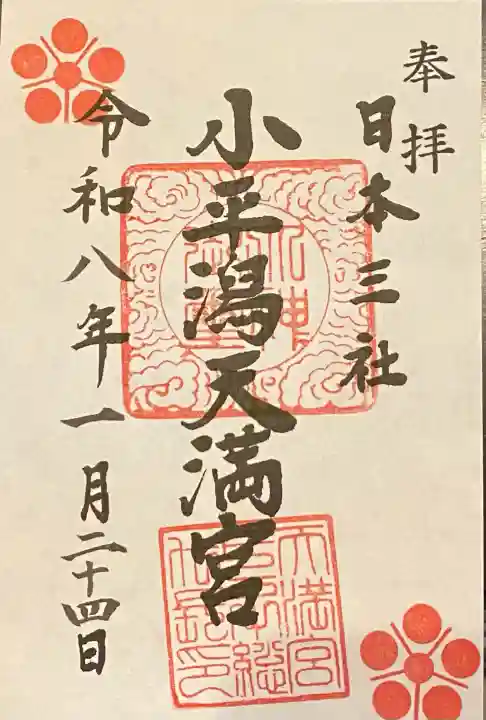 奉拝
日本三社
小平潟天満宮
令和八年一月二十四日